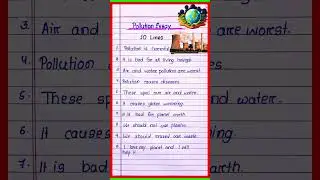 Pollution Essay
10 Lines
1. Pollution is
2. It is bad for all living beings.
3. Air and water pollution are worst.
4. Pollution causes diseases.
5. These spoil our air and water.
6. It causes global warming.
7. It is bad for planet earth.
8. We should not use plastic.
9. We should less waste.
10. I love my planet and I will
help it.
3. Air and
are worst.
4. Pollution
5. These spo
water.
6. It causes
7. It is bad
arth.